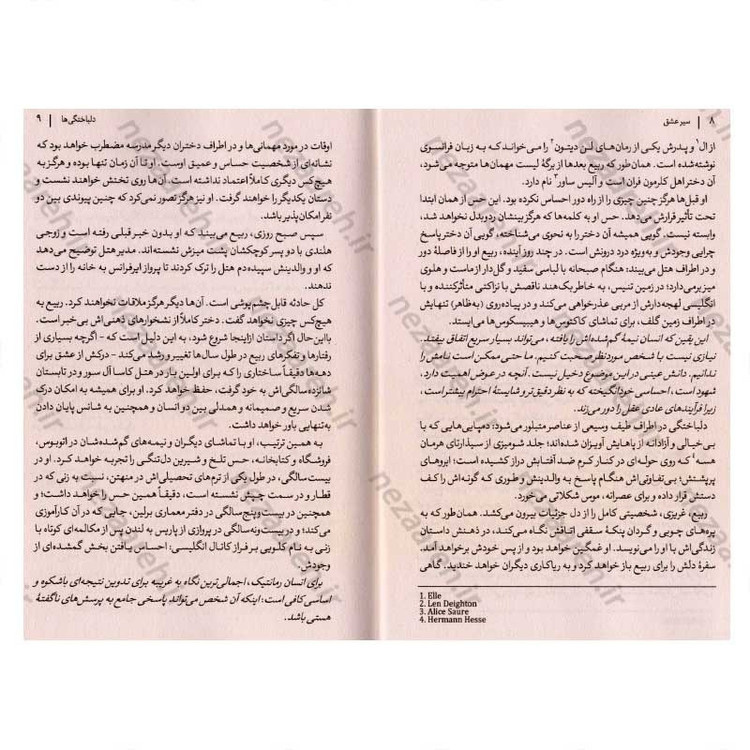 ۸ | سیر عشق
از ال¹ و پدرش یکی از رمان‌های لن دیتون² را می‌خواند که به زبان فرانسوی
نوشته شده است. همان‌طور که ربیع بعدها از برگهٔ لیست مهمان‌ها متوجه می‌شود،
آن دختر اهل کلرمون فران است و آلیس ساور³ نام دارد.
او قبل‌ها هرگز چنین چیزی را از راه دور احساس نکرده بود. این حس از همان ابتدا
تحت تأثیر قرارش می‌دهد. حس او به کلمه‌ها که هرگز بینشان ردوبدل نخواهد شد،
وابسته نیست. گویی همیشه آن دختر را به نحوی می‌شناخته، گویی آن دختر پاسخ
چرایی وجودش و به‌ویژه درد درونش است. در چند روز آینده، ربیع او را از فاصلهٔ دور
و در اطراف هتل می‌بیند: هنگام صبحانه با لباسی سفید و گل‌دار از ماست و هلوی
میز برمی‌دارد؛ در زمین تنیس، به خاطر بک‌هند ناقصش با نزاکتی متأثرکننده و با
انگلیسی لهجه‌دارش از مربی عذرخواهی می‌کند و در پیاده‌روی (به‌ظاهر) تنهایش
در اطراف زمین گلف، برای تماشای کاکتوس‌ها و هیبیسکوس‌ها می‌ایستد.
این یقین که انسان نیمهٔ گم‌شده‌اش را یافته، می‌تواند بسیار سریع اتفاق بیفتد.
نیازی نیست با شخص موردنظر صحبت کنیم. ما حتی ممکن است نامش را
ندانیم. دانش عینی در این موضوع دخیل نیست. آنچه در عوض اهمیت دارد،
شهود است، احساسی خودانگیخته که به نظر دقیق‌تر و شایستهٔ احترام بیشتر است،
زیرا فرآیندهای عادی عقل را دور می‌زند.
دلباختگی در اطراف طیف وسیعی از عناصر متبلور می‌شود: دمپایی‌هایی که با
بی‌خیالی و آزادانه از پاهایش آویزان شده‌اند؛ جلد شومیزی از سیذارتای هرمان
هسه⁴ که روی حوله‌ای در کنار کرم ضدآفتابش دراز کشیده است؛ ابروهای
پرپشتش؛ بی‌تفاوتی‌اش هنگام پاسخ به والدینش و طوری که گونه‌اش را کف
دستش قرار داده و برای عصرانه، موس شکلاتی می‌خورد.
ربیع، غریزی، شخصیتی کامل را از دل جزئیات بیرون می‌کشد. همان‌طور که به
پره‌های چوبی و گردان پنکهٔ سقفی اتاقش نگاه می‌کند، در ذهنش داستان
زندگی‌اش با او را می‌نویسد. او غمگین خواهد بود و از پس خودش برخواهد آمد.
سفرهٔ دلش را برای ربیع باز خواهد کرد و به ریاکاری دیگران خواهد خندید. گاهی
1. Elle
2. Len Deighton
3. Alice Saure
4. Hermann Hesse
دلباختگی‌ها | ۹
اوقات در مورد مهمانی‌ها و در اطراف دختران دیگر مدرسه مضطرب خواهد بود که
نشانه‌ای از شخصیت حساس و عمیق اوست. او تا آن زمان تنها بوده و هرگز به
هیچ‌کس دیگری کاملاً اعتماد نداشته است. آن‌ها روی تختش خواهند نشست و
دستان یکدیگر را خواهند گرفت. او نیز هرگز تصور نمی‌کرد که چنین پیوندی بین دو
نفر امکان‌پذیر باشد.
سپس صبح روزی، ربیع می‌بیند که او بدون خبر قبلی رفته است و زوجی
هلندی با دو پسر کوچکشان پشت میزش نشسته‌اند. مدیر هتل توضیح می‌دهد
که او و والدینش سپیده‌دم هتل را ترک کردند تا پرواز ایرفرانس به خانه را از دست
ندهند.
کل حادثه قابل چشم‌پوشی است. آن‌ها دیگر هرگز ملاقات نخواهند کرد. ربیع به
هیچ‌کس چیزی نخواهد گفت. دختر کاملاً از نشخوارهای ذهنی‌اش بی‌خبر است.
بااین‌حال اگر داستان از اینجا شروع شود، به این دلیل است که – اگرچه بسیاری از
رفتارها و تفکرهای ربیع در طول سال‌ها تغییر و رشد می‌کند – درکش از عشق برای
دهه‌ها دقیقاً ساختاری را که برای اولین بار در هتل کاسا آل سور و در تابستان
شانزده‌سالگی‌اش به خود گرفت، حفظ خواهد کرد. او برای همیشه به امکان درک
شدن سریع و صمیمانه و همدلی بین دو انسان و همچنین به شانس پایان دادن
به تنهایی باور خواهد داشت.
به همین ترتیب، او با تماشای دیگران و نیمه‌های گم‌شده‌شان در اتوبوس،
فروشگاه و کتابخانه، حس تلخ و شیرین دل‌تنگی را تجربه خواهد کرد. او در
بیست‌سالگی، در طول یکی از ترم‌های تحصیلی‌اش در منهتن، نسبت به زنی که در
قطار و در سمت چپش نشسته است، دقیقاً همین حس را خواهد داشت؛ و
همچنین در بیست‌وپنج‌سالگی در دفتر معماری برلین، جایی که در آن کارآموزی
می‌کند؛ و در بیست‌ونه‌سالگی در پروازی از پاریس به لندن پس از مکالمه‌ای کوتاه با
زنی به نام کلویی بر فراز کانال انگلیسی: احساس یافتن بخش گمشده‌ای از
وجودش.
برای انسان رمانتیک، اجمالی‌ترین نگاه به غریبه برای تدوین نتیجه‌ای باشکوه و
اساسی کافی است؛ اینکه آن شخص می‌تواند پاسخی جامع به پرسش‌های ناگفتهٔ
هستی باشد.
nezaareh.ir